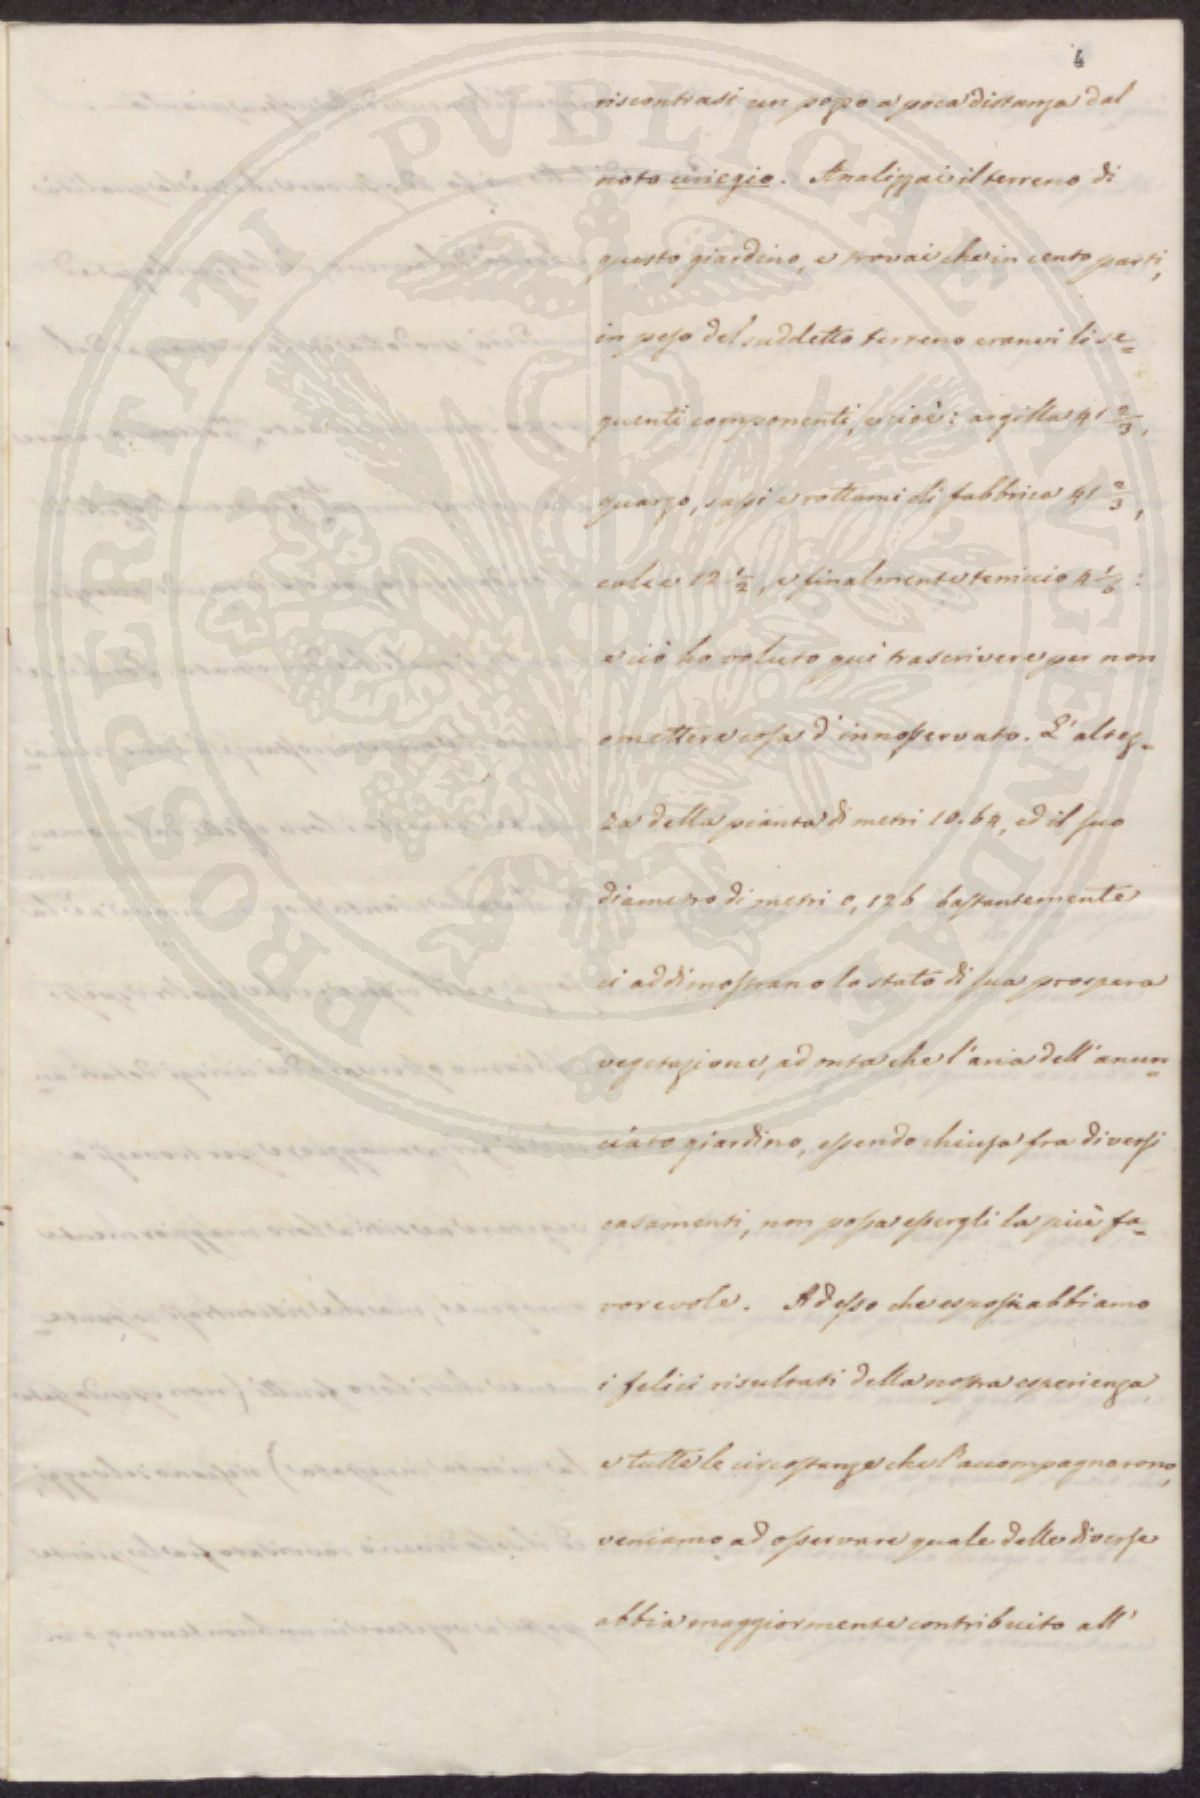 4
riscontrasi un pozzo a poca distanza dal
noto ciriegio. Analizzai il terreno di
questo giardino, e trovai che in cento parti,
in peso del suddetto terreno eranvi li se=
guenti componenti, e cioè: argilla 41 2/3,
quarzo, sassi e rottami di fabbrica 41 2/3,
calce 12 1/2, e finalmente terriccio 4 1/6:
e ciò ho voluto qui trascrivere per non
omettere cosa d'innosservato. L'altez=
za della pianta di metri 10.64, ed il suo
diametro di metri 0,126 bastantemente
ci addimostrano lo stato di sua prospera
vegetazione, ad onta che l'aria dell'anun=
ciato giardino, essendo chiusa fra diversi
casamenti, non possa essergli la più fa=
vorevole. Adesso che esposti abbiamo
i felici risultati della nostra esperienza,
e tutte le circostanze che l'accompagnarono,
veniamo ad osservare quale delle diverse
abbia maggiormente contribuito all'
PROSPERITATI PVBLICAE AVGENDAE